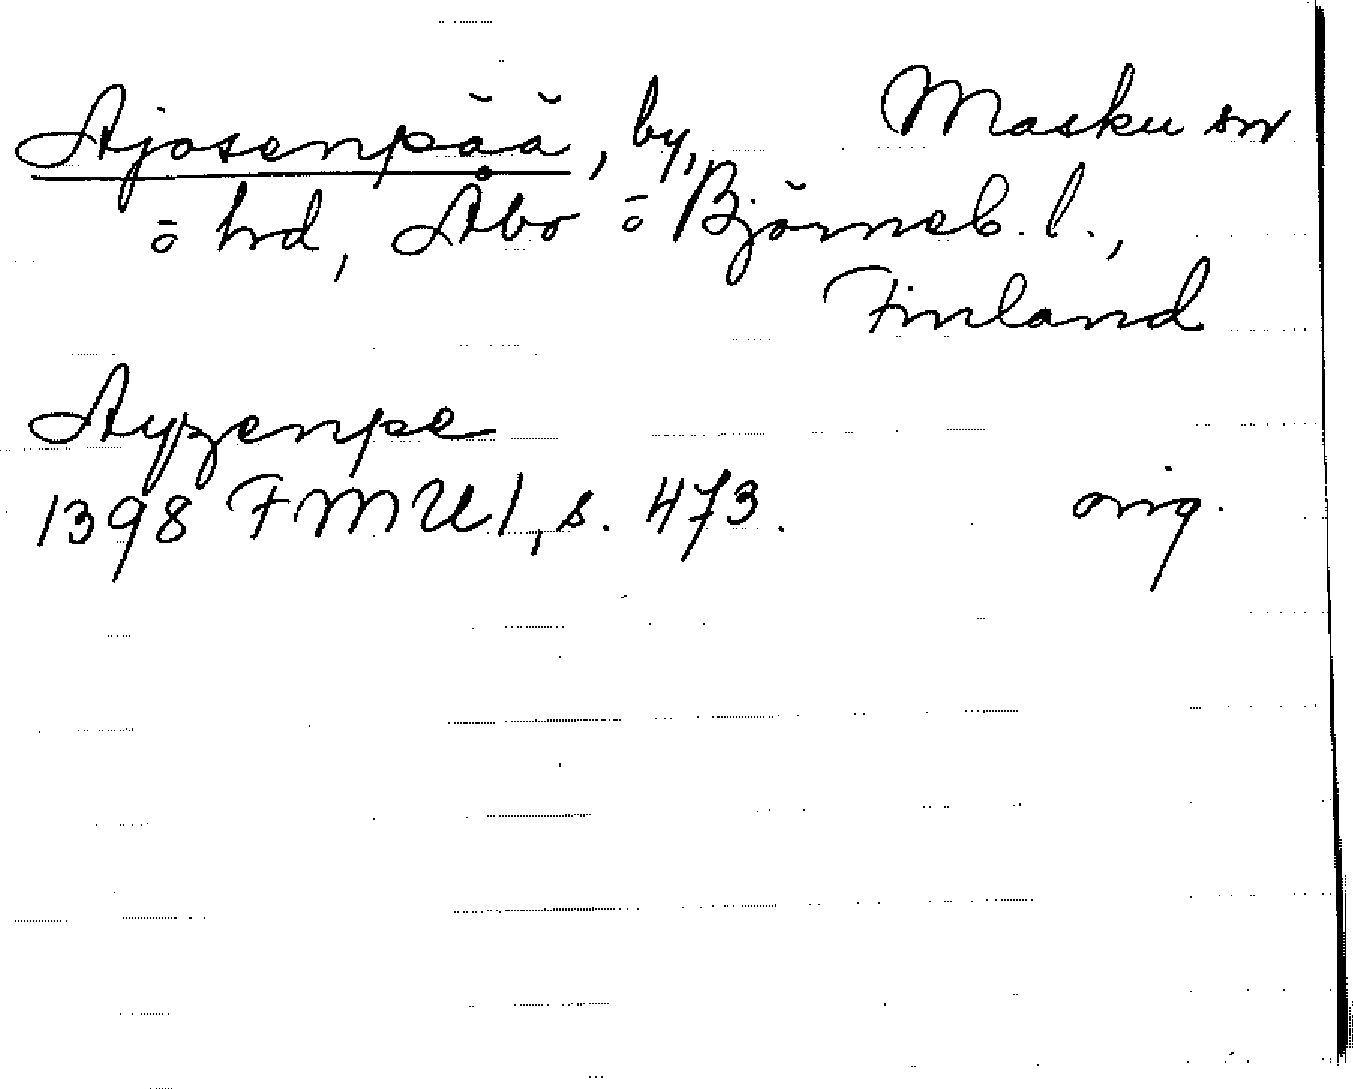 Ajosenpää, by, Masku sn
o hd, Åbo o Björneb. l.,
Finland
Ayzenpe
1398 FMU I, s. 473. orig.